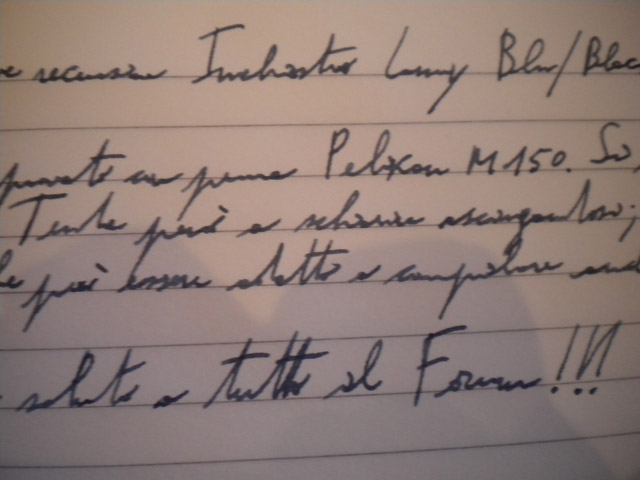 recensione Inchiostro Lamy Blu/Blac
provato con penna Pelikan M150. So,
Tende però a schiarire asciugandosi;
può essere adatto a compilare
saluto a tutto il Forum!!!